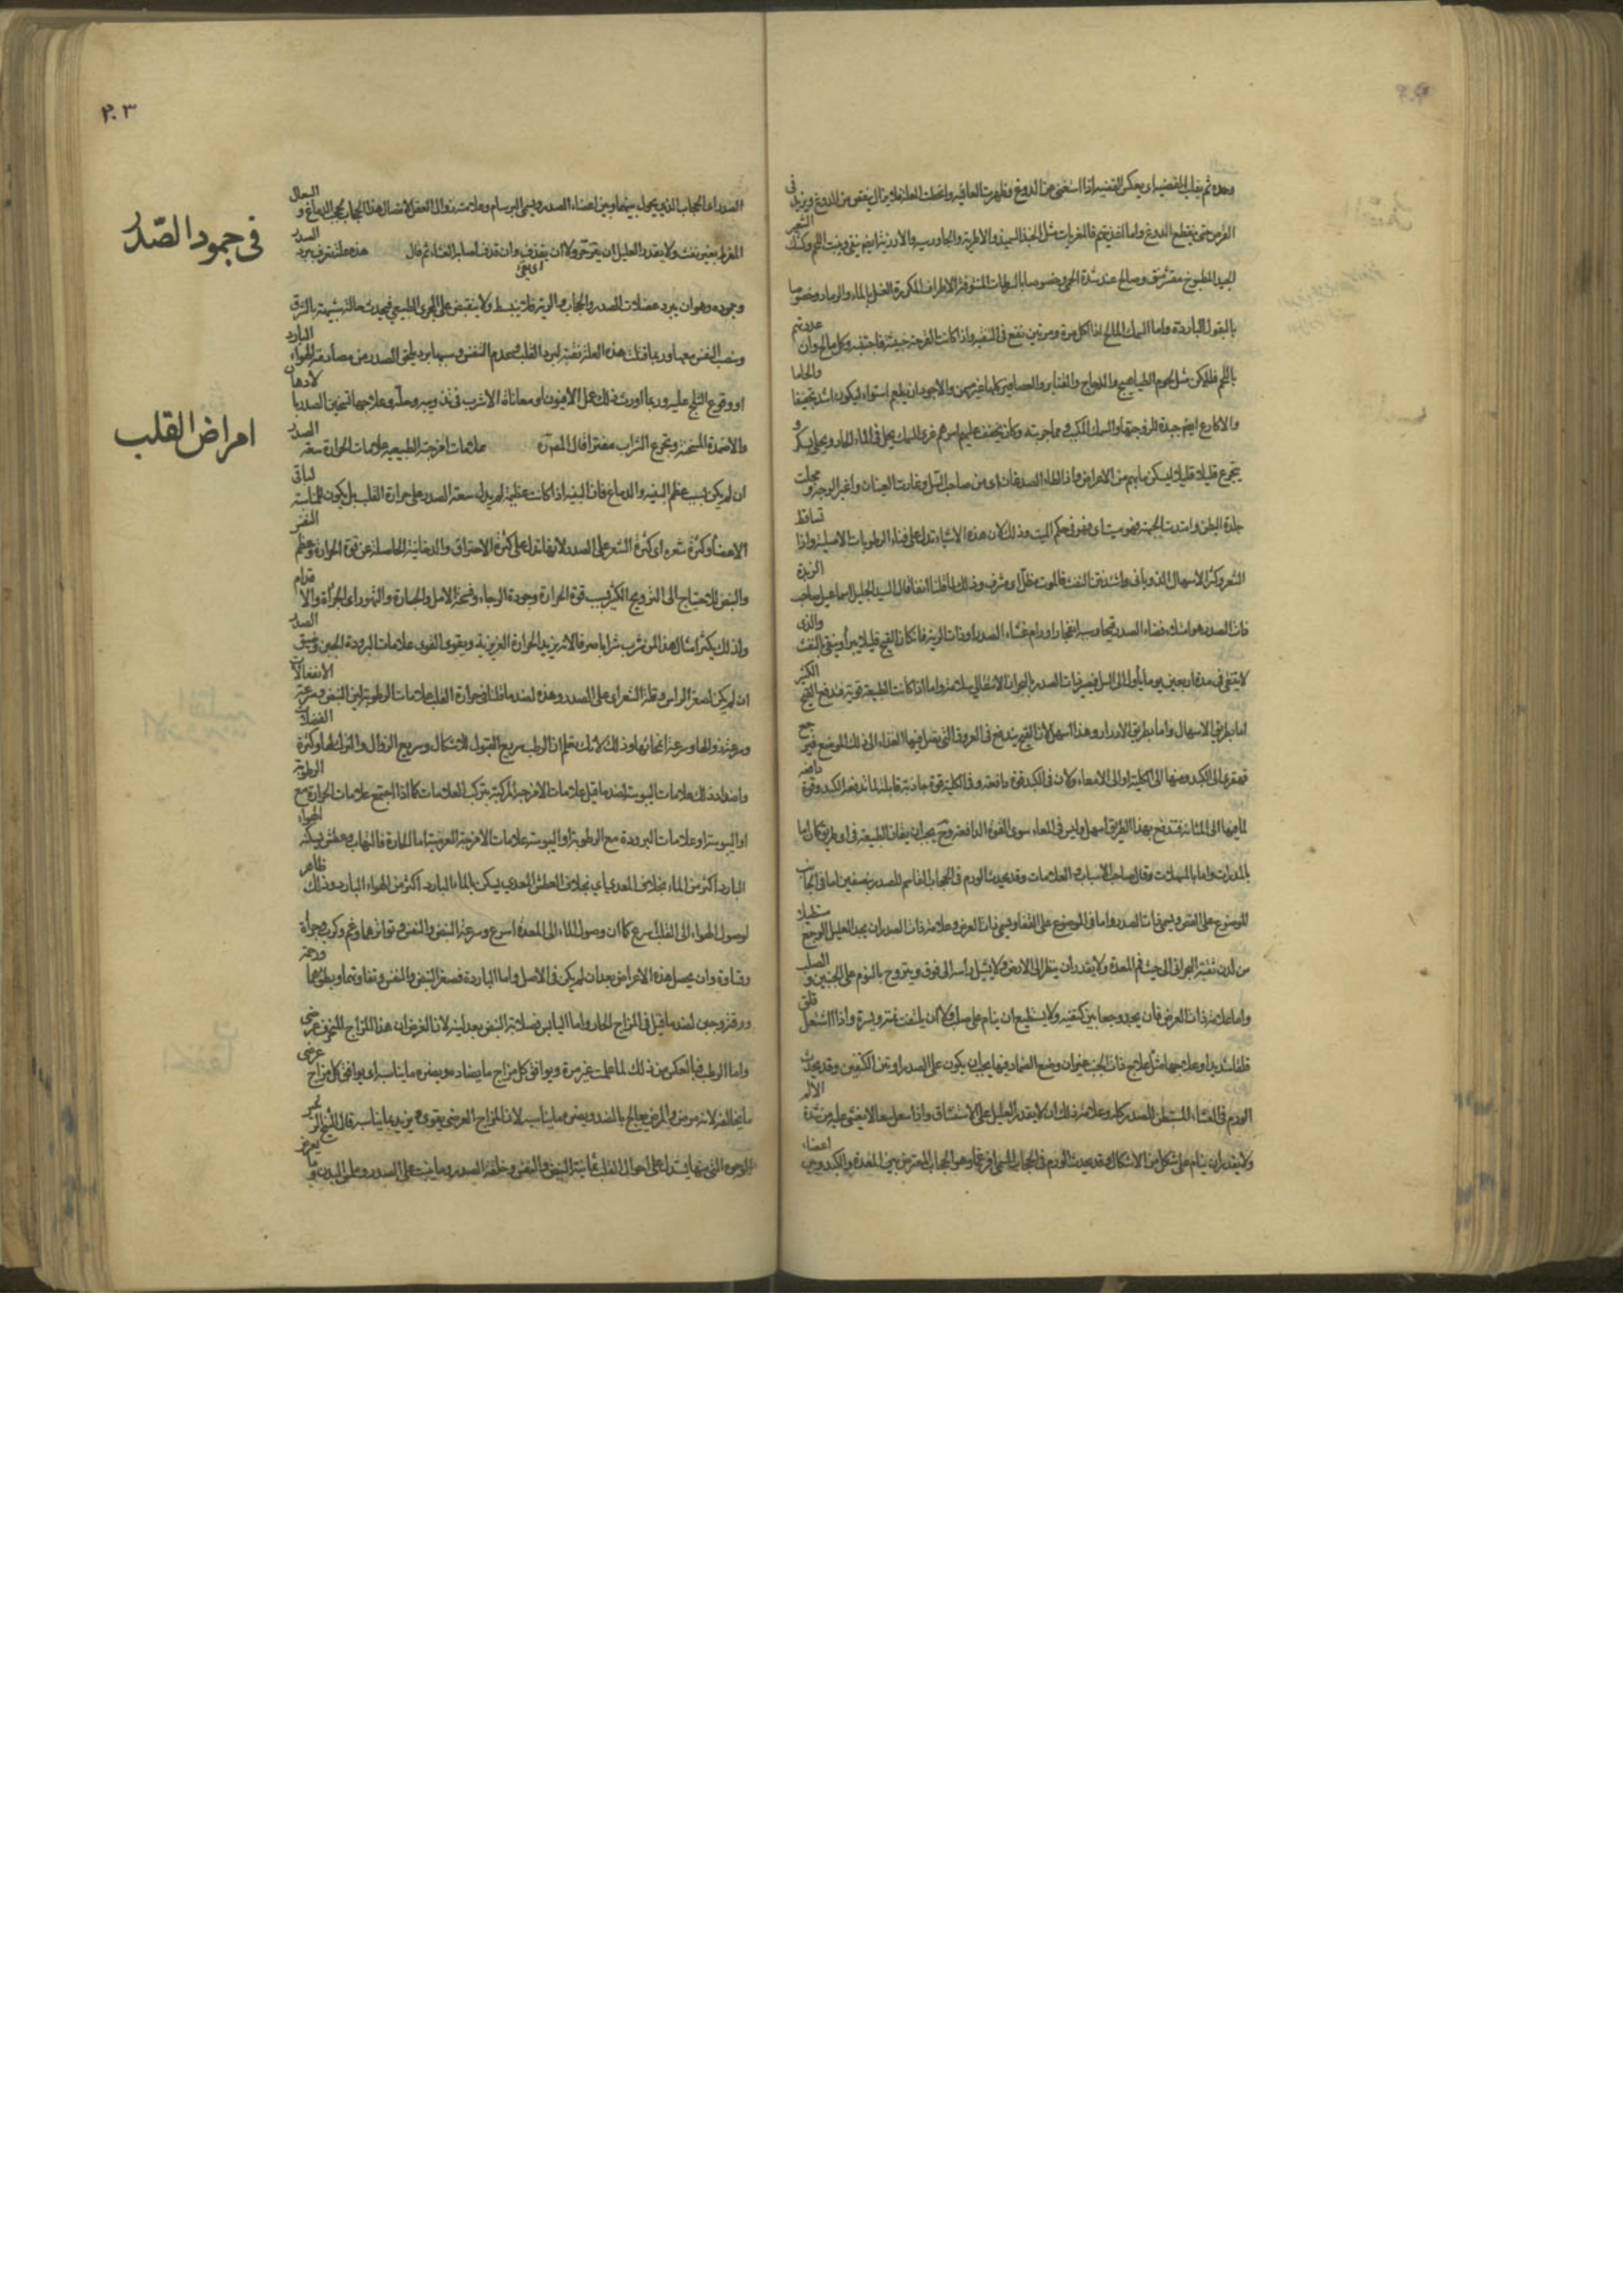 وحده ثم يقلب القضية اى يعكس القضية اذا استغنى عن الدوغ وظهرت العافية وانحطت العلة فلا يزال ينقص من الدوغ ويزيد فى
القرص حتى ينقطع الدوغ واما اغذيتهم فالمغريات مثل الخبذ السميذ والاطرية والجاورسية والارزية ايضا ينقى وينبت اللحم وكشك الشعير
الجيد المطبوخ مقشر منق وصالح عند شدة الحمى وخصوصا بالسرطانات المنتوفة الاطراف المكررة الغسل بالماء والرماد وخصوصا
بالبقول الباردة واما السمك المالح اذا اكل مرة ومرتين نفع فى التنقية واذا كانت القرحة خبيثة فاجتنبه وكل مالح وان غذوتهم
باللحم فليكن مثل لحوم الطياهيج والدجاج والقنابر والعصافير كلها غير سمين والاجود ان يطعم استواء ليكون اشد تجفيفا والحاما
والاكارع ايضا جيدة للزوجتها والسمك المكبب و مما جربته وكان يخفف عليهم امرهم غرى السمك يحل فى الماء الحار ويحلى بسكر و
يتجرع قليلا قليلا ليسكن ما بهم من الاعراض واذا طاء الصدغان اى من صاحب السل وغارت العينان واغبر الوجه و قحلت
جلدة البطن وامتدت الجبهة فهو ميت اى فهو فى حكم الميت وذلك لان هذه الاشياء تدل على فناء الرطوبات الاصلية واذا تساقط
الشعر وكثر الاسهال الذوبانى واشتد نتن النفث فالموت مظل اى مشرف وذلك لما قلنا انفا قال السيد الجليل اسماعيل صاحب الزبدة
ذات الصدر هو امتلاء فضاء الصدر قيحا وسببه انفجار اورام غشاء الصدر او ذات الرية فان كان القيح قليلا يبرأ وينقى بالنفث والذى
لا ينقى فى مدة اربعين يوما يأول الى السل فيصير ذات الصدر بالبحران الانتقالى سلا منه واما اذا كانت الطبيعة قوية فتدفع القيح الكثير
اما بطريق الاسهال واما بطريق الادرار وهذا اسهل لان القيح يندفع فى العروق التى يصل فيها الغذاء الى ذلك الموضع فيرجع
قهقرى الى الكبد ومنها الى الكلية او الى الامعاء ولان فى الكبد قوة دافعة وفى الكلية قوة جاذبة قابلة لما تدفعه الكبد وقوة دافعة
لما فيها الى المثانة فتدفع بهذا الطريق اسهل وليس فى المعاء سوى القوة الدافعة وح يجب ان يعان الطبيعة فى اى طريق كان اما
بالمدرات واما بالمسهلات وقال صاحب الاسباب والعلامات وقد يحدث الورم فى الحجاب القاسم للصدر بنصفين اما فى الجانب
الموضوع على القص ويسمى ذات الصدر واما فى الموضوع على القفا ويسمى ذات العرض وعلامة ذات الصدر ان يجد العليل الوجع مستطيلا
من لدن ثقبة النحر الى حيث فم المعدة ولا يقدر ان ينظر الى الارض ولا يشيل راسه الى فوق ويتروح بالنوم على الجنبين و الصلب
واما علامة ذات العرض فان يجد وجعا بين كتفيه ولا يستطيع ان ينام على صلبه ولا ان يلتفت يمنة ويسرة واذا سعل قلق
قلقا شديدا وعلاجهما مثل علاج ذات الجنب غير ان وضع الضماد فيها يجب ان يكون على الصدر او بين الكتفين وقد يحدث
الورم فى الغشاء المستبطن للصدر كله وعلامة ذلك ان لا يقدر العليل على الاستنشاق واذا سعل سعالا يغشى عليه من شدة الالم
ولا يقدر ان ينام على شكل من الاشكال وقد يحدث الورم فى الحجاب المسمى ديافرغما وهو الحجاب المعترض بين المعدة والكبد وبين اعضاء
٢٠٣
الصدر اى الحجاب الذى يحول بينهما وبين اعضاء الصدر ويسمى البرسام وعلامته زوال العقل لاتصال هذا الحجاب بحجب الدماغ و السعال
المفرط بغير نفث ولا يقدر العليل ان يتزحر ولا ان يقذف اى يقئ وان قذف اصابه الغشاء ثم قال هذه علة تعرف ببرد الصدر
وجموده وهو ان يبرد عضلات الصدر والحجاب والرية فلا تنبسط ولا ينقبض على المجرى الطبيعى فيحدث حالة شبيهة بالزرق
ونصب النفس معها وربما قتلت هذه العلة بغتة لبرد القلب وعدم التنفس وسببها برد يلحق الصدر من مصادفة الهواء البارد
او وقوع الثلج عليه وربما اورث ذلك عمل الافيون او معاناة الاشرب فى تذويبه وحله وعلاجها تسخين الصدر بالادهان
والاضمدة المسخنة وتجرع الشراب مفترا قال المصره علامات امزجته الطبيعية علامات الحرارة سعة الصدر
ان لم يكن بسبب عظم البنية والدماغ فان البنية اذا كانت عظيمة لم يدل سعة الصدر على حرارة القلب بل يكون للمناسبة لباقى
الاعضاء وكثرة شعره اى كثرة الشعر على الصدر لانها تدل على كثرة الاحتراق والدخانية الحاصلة عن قوة الحرارة وعظم النفس
والنبض للاحتياج الى الترويح الكثير بسبب قوة الحرارة وجودة الرجاء وفسحة الامل والجسارة والتهور اى الجرأة والاقدام
ولذلك يكثر امثال هذا لمن شرب شرابا صرفا لانه يزيد الحرارة الغريزية ويقوى القوى علامات البرودة الجبن وضيق الصدر
ان لم يكن لصغر الراس وقلة الشعر اى على الصدر وهذه لضد ما قلنا فى حرارة القلب علامات الرطوبة لين النبض وسرعة الانفعالات
وسرعة زوالها وسرعة انمحائها وذلك لانك تعلم ان الرطب سريع القبول للاشكال وسريع الزوال والترك لها وكثرة الفضلات
واضداد ذلك علامات اليبوسة لضد ما قيل علامات الامزجة المركبة بتركب العلامات كما اذا اجتمع علامات الحرارة مع الرطوبة
او اليبوسة او علامات البرودة مع الرطوبة او اليبوسة علامات الامزجة العرضية اما الحارة فالتهاب وعطش يسكنه الهواء
البارد اكثر من الماء بخلاف المعدى اى بخلاف العطش المعدى يسكن بالماء البارد اكثر من الهواء البارد وذلك ظاهر
لوصول الهواء الى القلب اسرع كما ان وصول الماء الى المعدة اسرع وسرعة النبض والنفس وتواترهما وغم وكرب وجرأة
وقساوة وان يحصل هذه الاعراض بعد ان لم يكن فى الاصل واما الباردة فصغر النبض والنفس وتفاوتهما وبطؤهما ورحمة
ورقة وجبن لضد ما قيل فى المزاج الحار واما اليابس فصلابة النبض بعد لينه لان الغرض ان هذا المزاج المنحرف عرضى
واما الرطب فبالعكس من ذلك لما علمت غير مرة ويوافق كل مزاج ما يضاده ويضره ما يناسبه اى يوافق كل مزاج عرضى
ما يخالفه لانه مرض والمرض يعالج بالضد ويضره ما يناسبه لان المزاج العرضى يقوى ويزيد بما يناسبه قال الشيخ الرئيس
الوجوه التى منها يستدل على احوال القلب ثمانية النبض والنفس وخلقة الصدر وما ينبت على الصدر وملمس البدن وما يعرض
فى جمود الصدر
امراض القلب